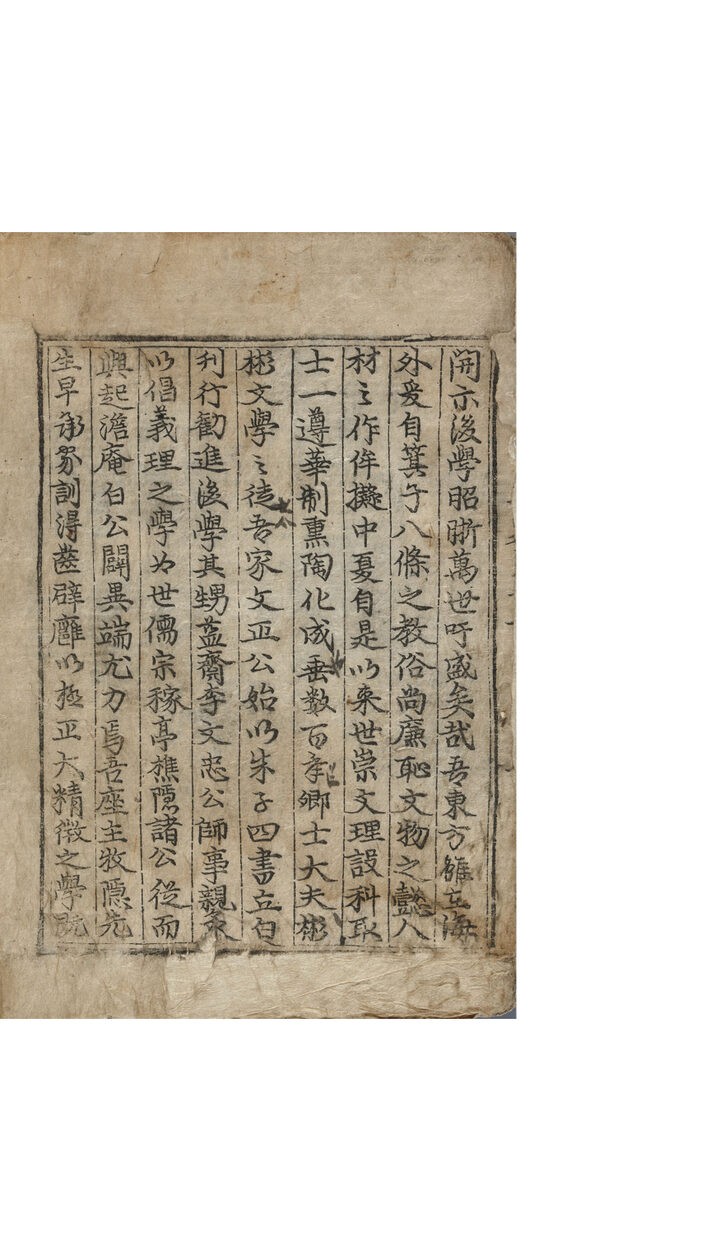 開示後學昭晰萬世吁盛矣哉吾東方雖在海
外爰自箕子八條之教俗尚廉恥文物之懿人
材之作侔擬中夏自是以来世崇文理設科取
士一遵華制熏陶化成垂数百年卿士大夫彬
彬文學之徒吾家文正公始以朱子四書立白
刋行勸進後學其甥益齋李文忠公師事親炙
以倡義理之學為世儒宗稼亭樵隱諸公従而
興起澹庵白公闢異端尤力焉吾座主牧隱先
生早承家訓得齒辟廱以極正大精微之學既